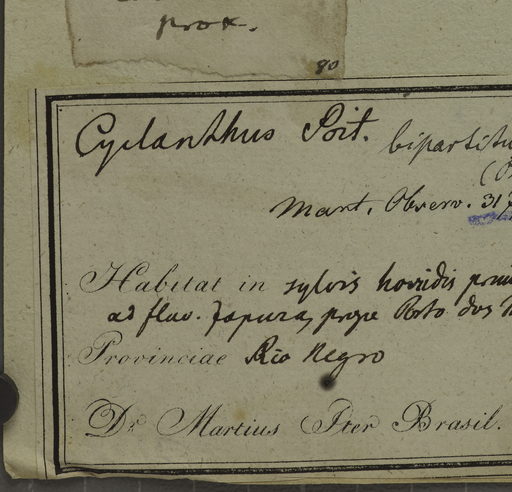 prox.
80
Cyclanthus Poit. bipartitu
Mart. Observ. 31
Habitat in sylvis horridis prim
ad fluv. Japura, prope Porto dos M
Provinciae Rio Negro
Dr. Martius Iter Brasil.